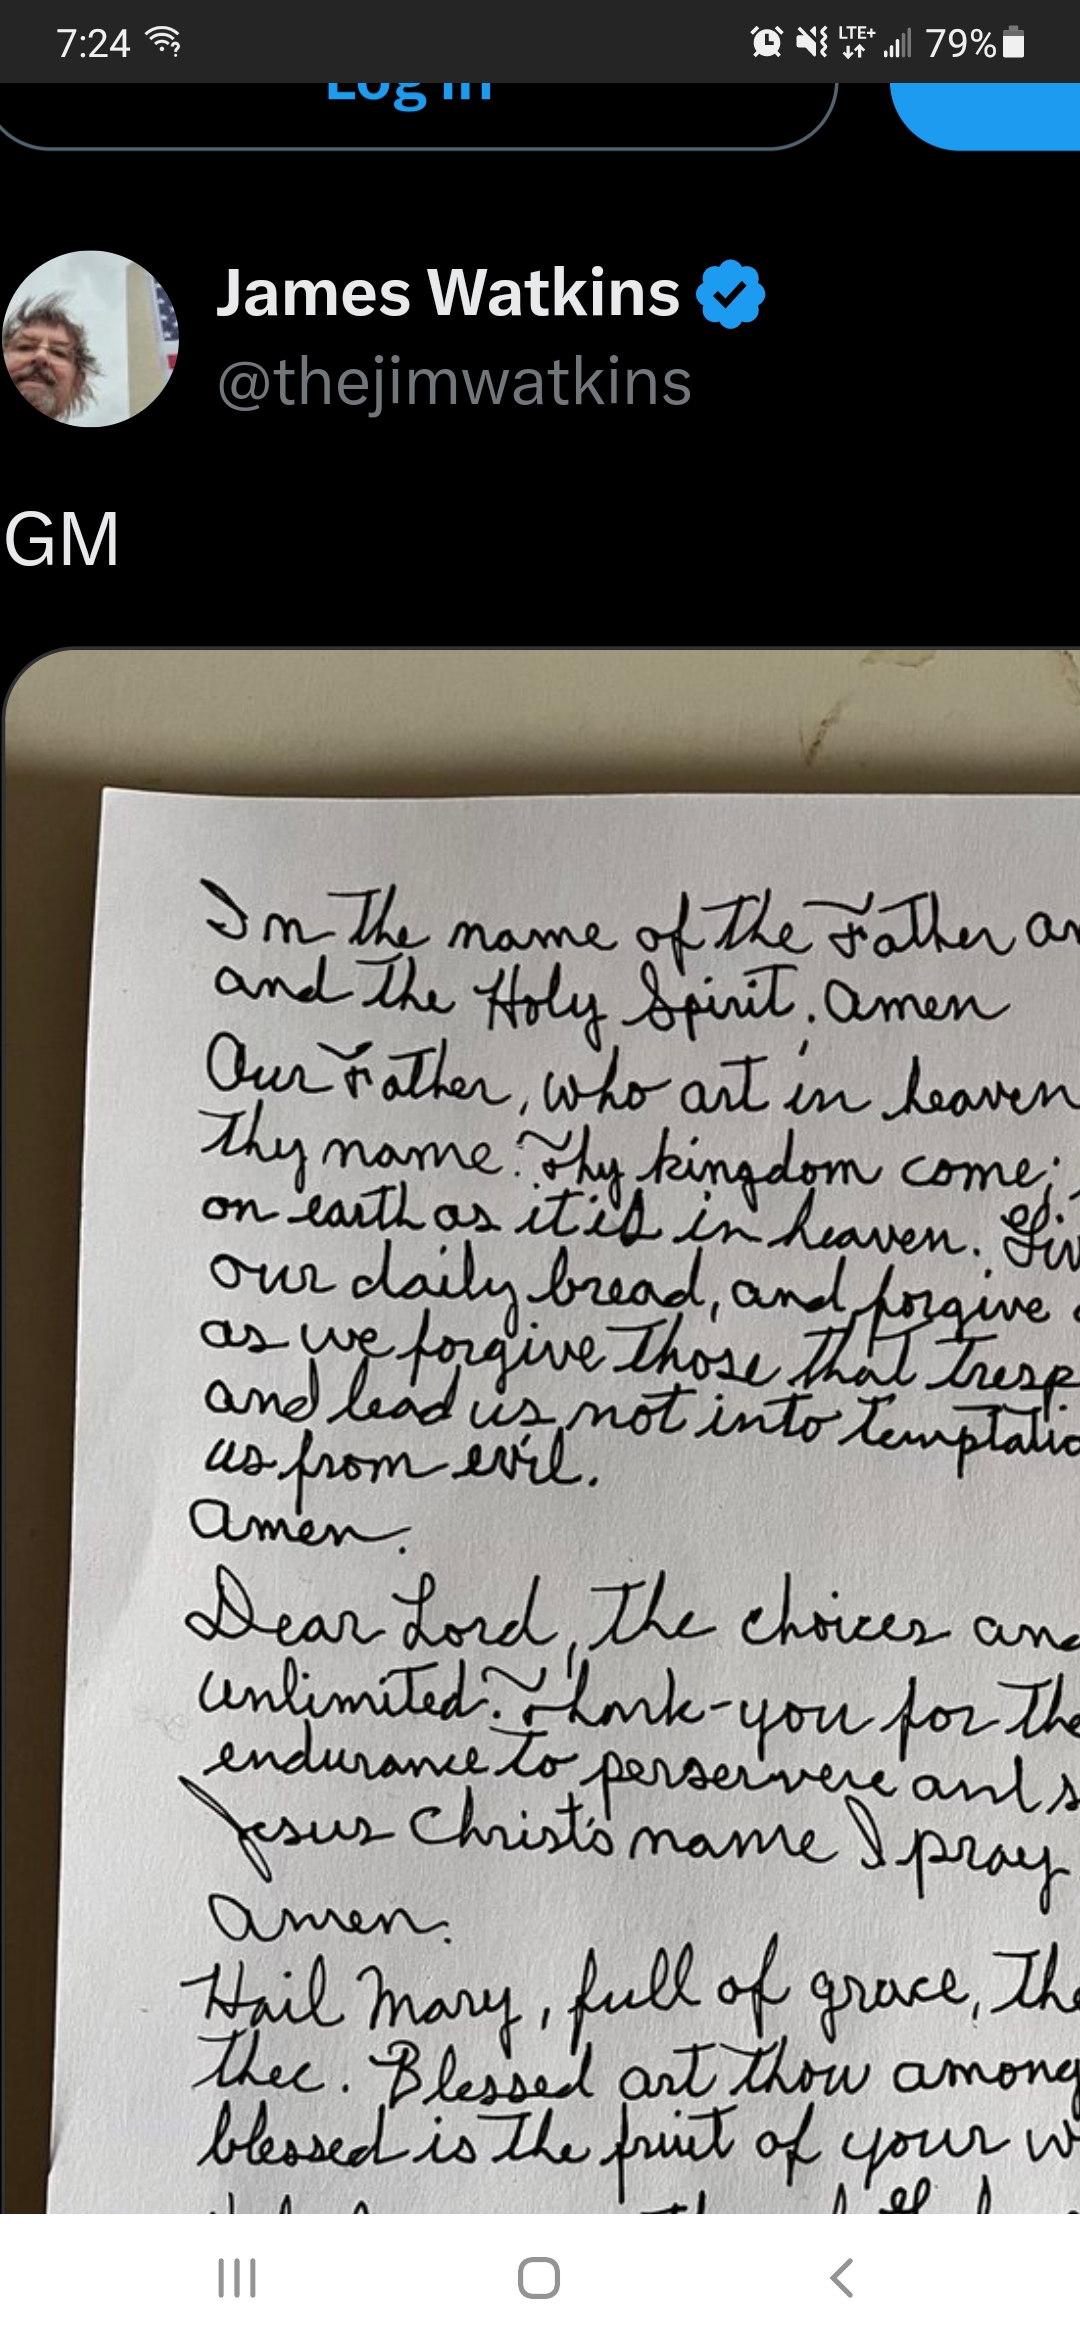 7:24 LTE+ 79%
Log in
James Watkins
@thejimwatkins
GM
In the name of the Father an
and the Holy Spirit. Amen
Our Father, who art in heaven
thy name. Thy kingdom come;
on earth as it is in heaven. Giv
our daily bread, and forgive
as we forgive those that tresp
and lead us not into temptatio
us from evil.
Amen.
Dear Lord, the choices and
unlimited. Thank-you for the
endurance to perservere and s
Jesus Christ's name I pray
Amen.
Hail Mary, full of grace, the
thee. Blessed art thou among
blessed is the fruit of your w